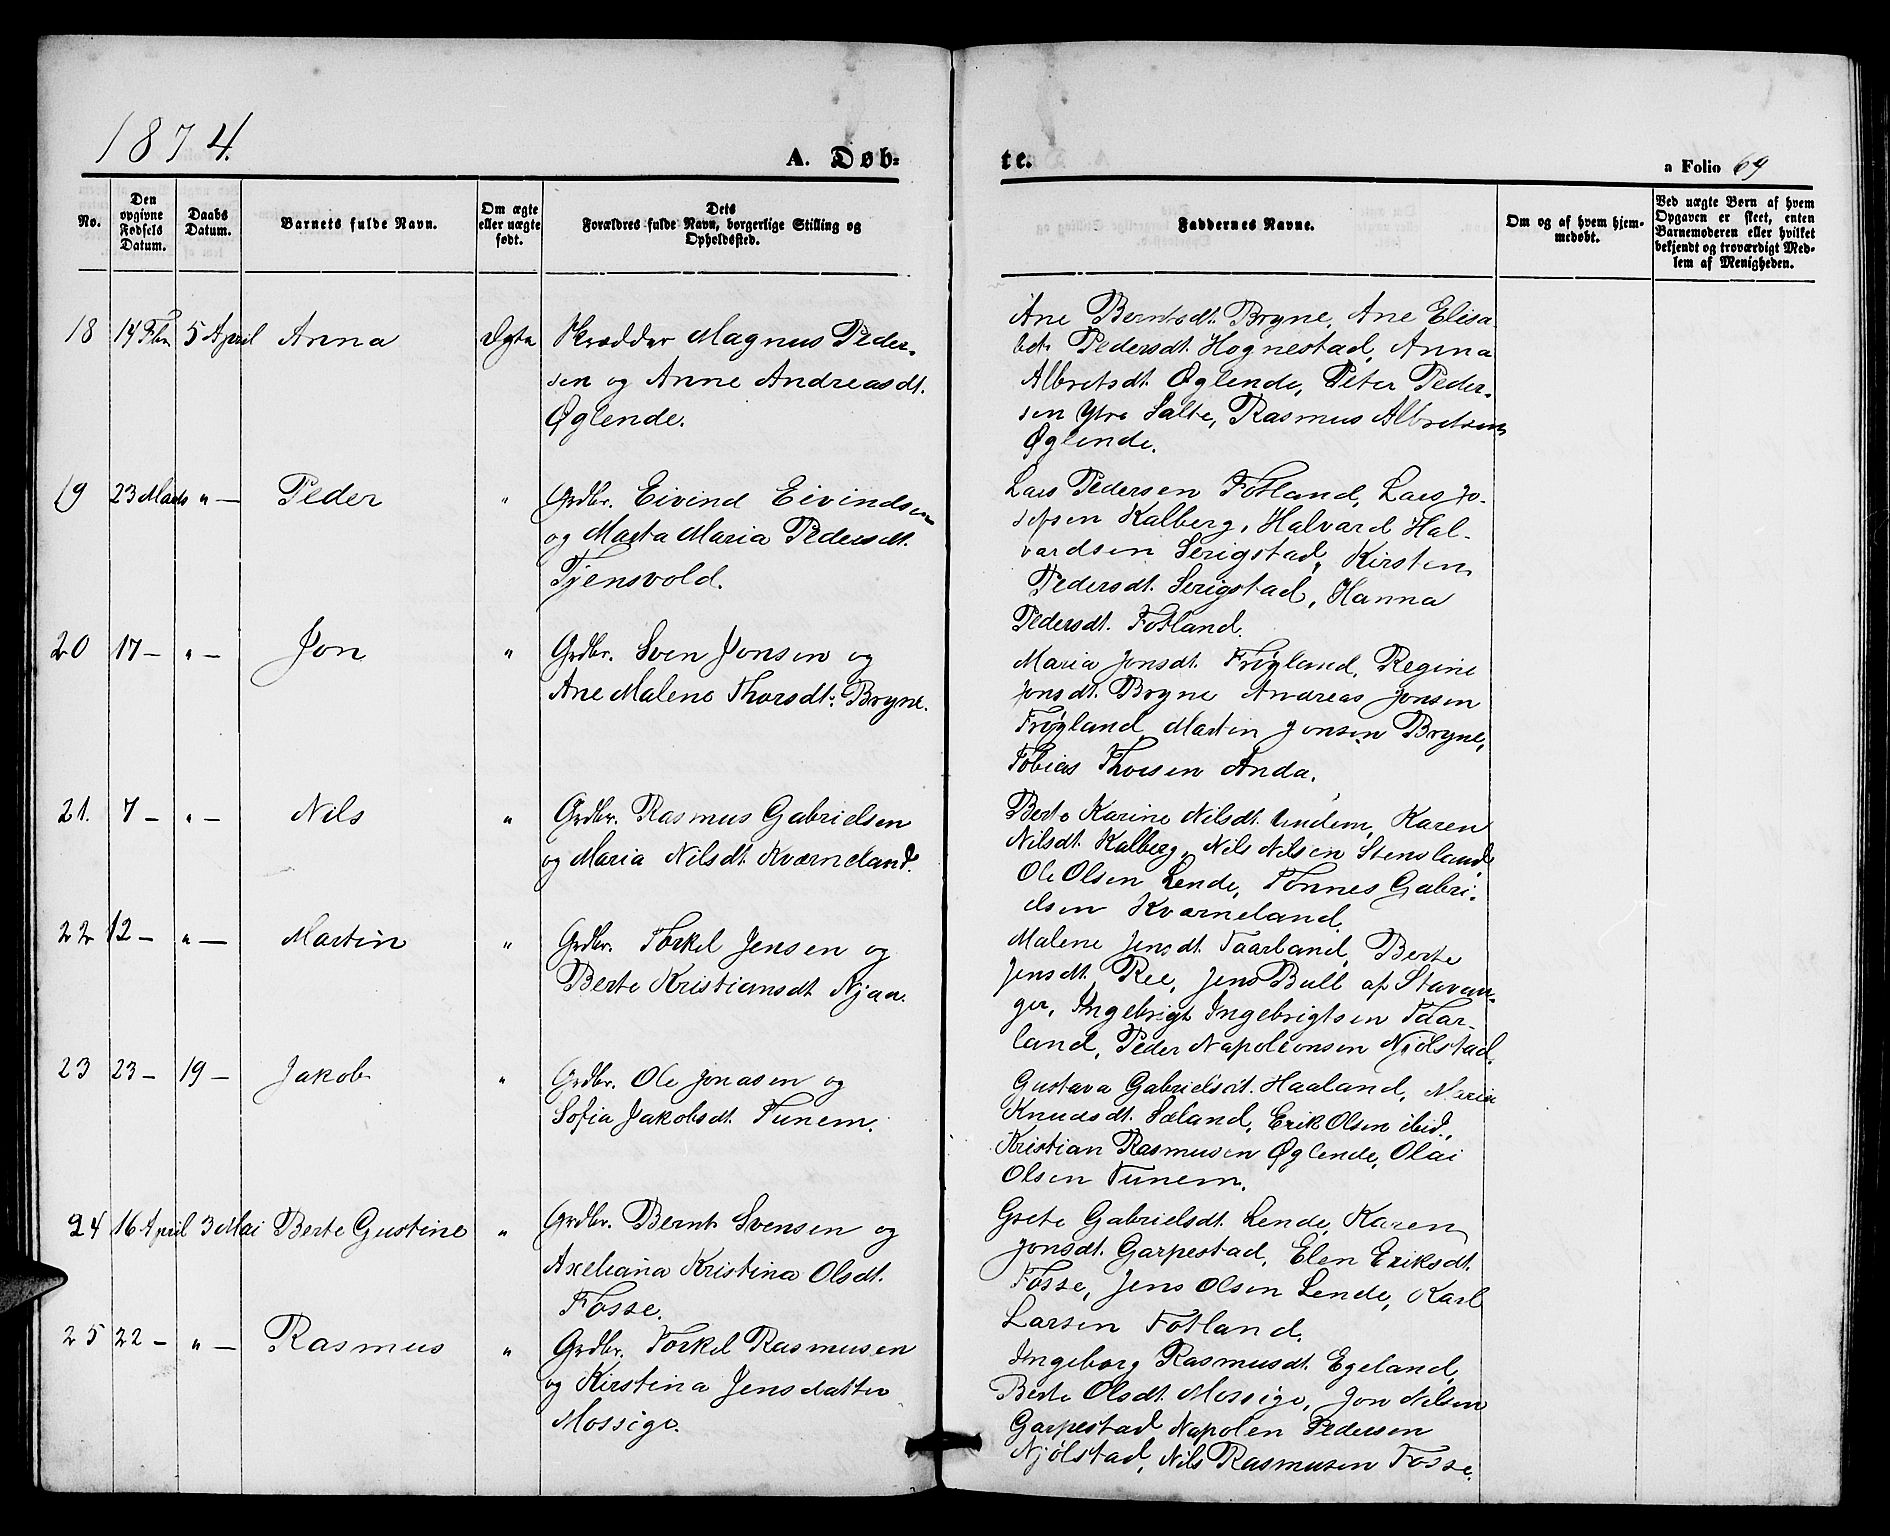 1874.
A. Døb=
te.
a Folio 69
No.
Den opgivne Fødsels Datum.
Daabs Datum.
Barnets fulde Navn.
Om ægte eller uægte født.
Dets Forældres fulde Navn, borgerlige Stilling og Opholdssted.
Faddernes Navne.
Om og af hvem hjem-
medøbt.
Ved uægte Børn af hvem
Opgaven er skeet, enten
Barnemoderen eller hvilket
bekjendt og troværdigt Med-
lem af Menigheden.
18 14 Fbr 5 April Anna Ægte Skrædder Magnus Peder-
sen og Anne Andreasdt.
Øglende.
Ane Berntsdt. Bryne, Ane Elisa
bet Pedersdt. Hognestad, Anna
Albretsdt. Øglende, Peter Peder-
sen Ytre Salte, Rasmus Albretsen
Øglende.
19 23 Marts " — Peder " Grdbr. Eivind Eivindsen
og Marta Maria Pedersdt.
Tjensvold.
Lars Pedersen Fotland, Lars Jo-
sefsen Kalberg, Halvard Hal-
vardsen Serigstad, Kirsten
Pedersdt. Serigstad, Hanna
Pedersdt. Fotland.
20 17 — " — Jon " Grdbr. Sven Jonsen og
Ane Malene Thorsdt. Bryne.
Maria Jonsdt. Frøyland, Regine
Jonsdt. Bryne Andreas Jonsen
Frøyland, Martin Jonsen Bryne,
Tobias Thorsen Anda.
21. 7 — " — Nils " Grdbr. Rasmus Gabrielsen
og Maria Nilsdt. Kværneland.
Berte Karine Nilsdt. Undem, Karen
Nilsdt. Kalberg, Nils Nilsen Stensland,
Ole Olsen Lende, Tønnes Gabri-
elsen Kværneland.
22 12 — " — Martin " Grdbr. Torkel Jensen og
Berte Kristiansdt. Njaa.
Malene Jensdt. Taarland, Berte
Jensdt. Ree, Jens Bull af Stavan-
ger, Ingebrigt Ingebrigtsen Taar-
land, Peder Napoleonsen Njølstad.
23 23 — 19 — Jakob " Grdbr. Ole Jonasen og
Sofia Jakobsdt. Tunem.
Gustava Gabrielsdt. Haaland,
Knudsdt. Sæland, Erik Olsen ibid.,
Kristian Rasmusen Øglende, Olai
Olsen Tunem.
24 16 April 3 Mai Berte Gustine " Grdbr. Bernt Svensen og
Axeliana Kristina Olsdt.
Fosse.
Grete Gabrielsdt. Lende, Karen
Jonsdt. Garpestad, Elen Eriksdt.
Fosse, Jens Olsen Lende, Karl
Larsen Fotland.
25 22 — " — Rasmus " Grdbr. Torkel Rasmusen
og Kirstina Jensdatter
Mossige.
Ingeborg Rasmusdt. Egeland,
Berte Olsdt. Mossige, Jon Nilsen
Garpestad Napolen Pedersen
Njølstad, Nils Rasmusen Fosse.